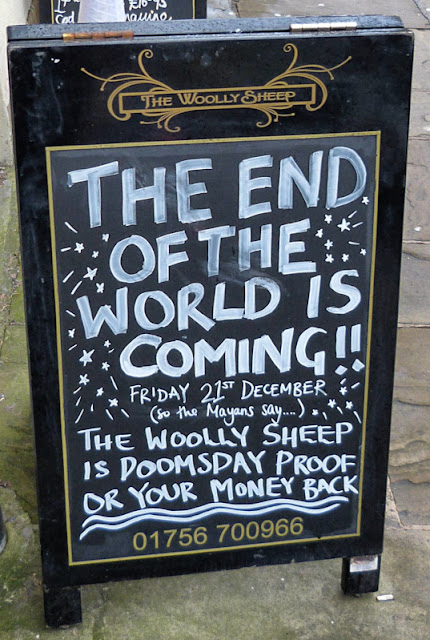 £10.45
THE WOOLLY SHEEP
THE END
OF THE
WORLD IS
COMING!!
FRIDAY 21ST DECEMBER
(so the Mayans say....)
THE WOOLLY SHEEP
IS DOOMSDAY PROOF
OR YOUR MONEY BACK
01756 700966